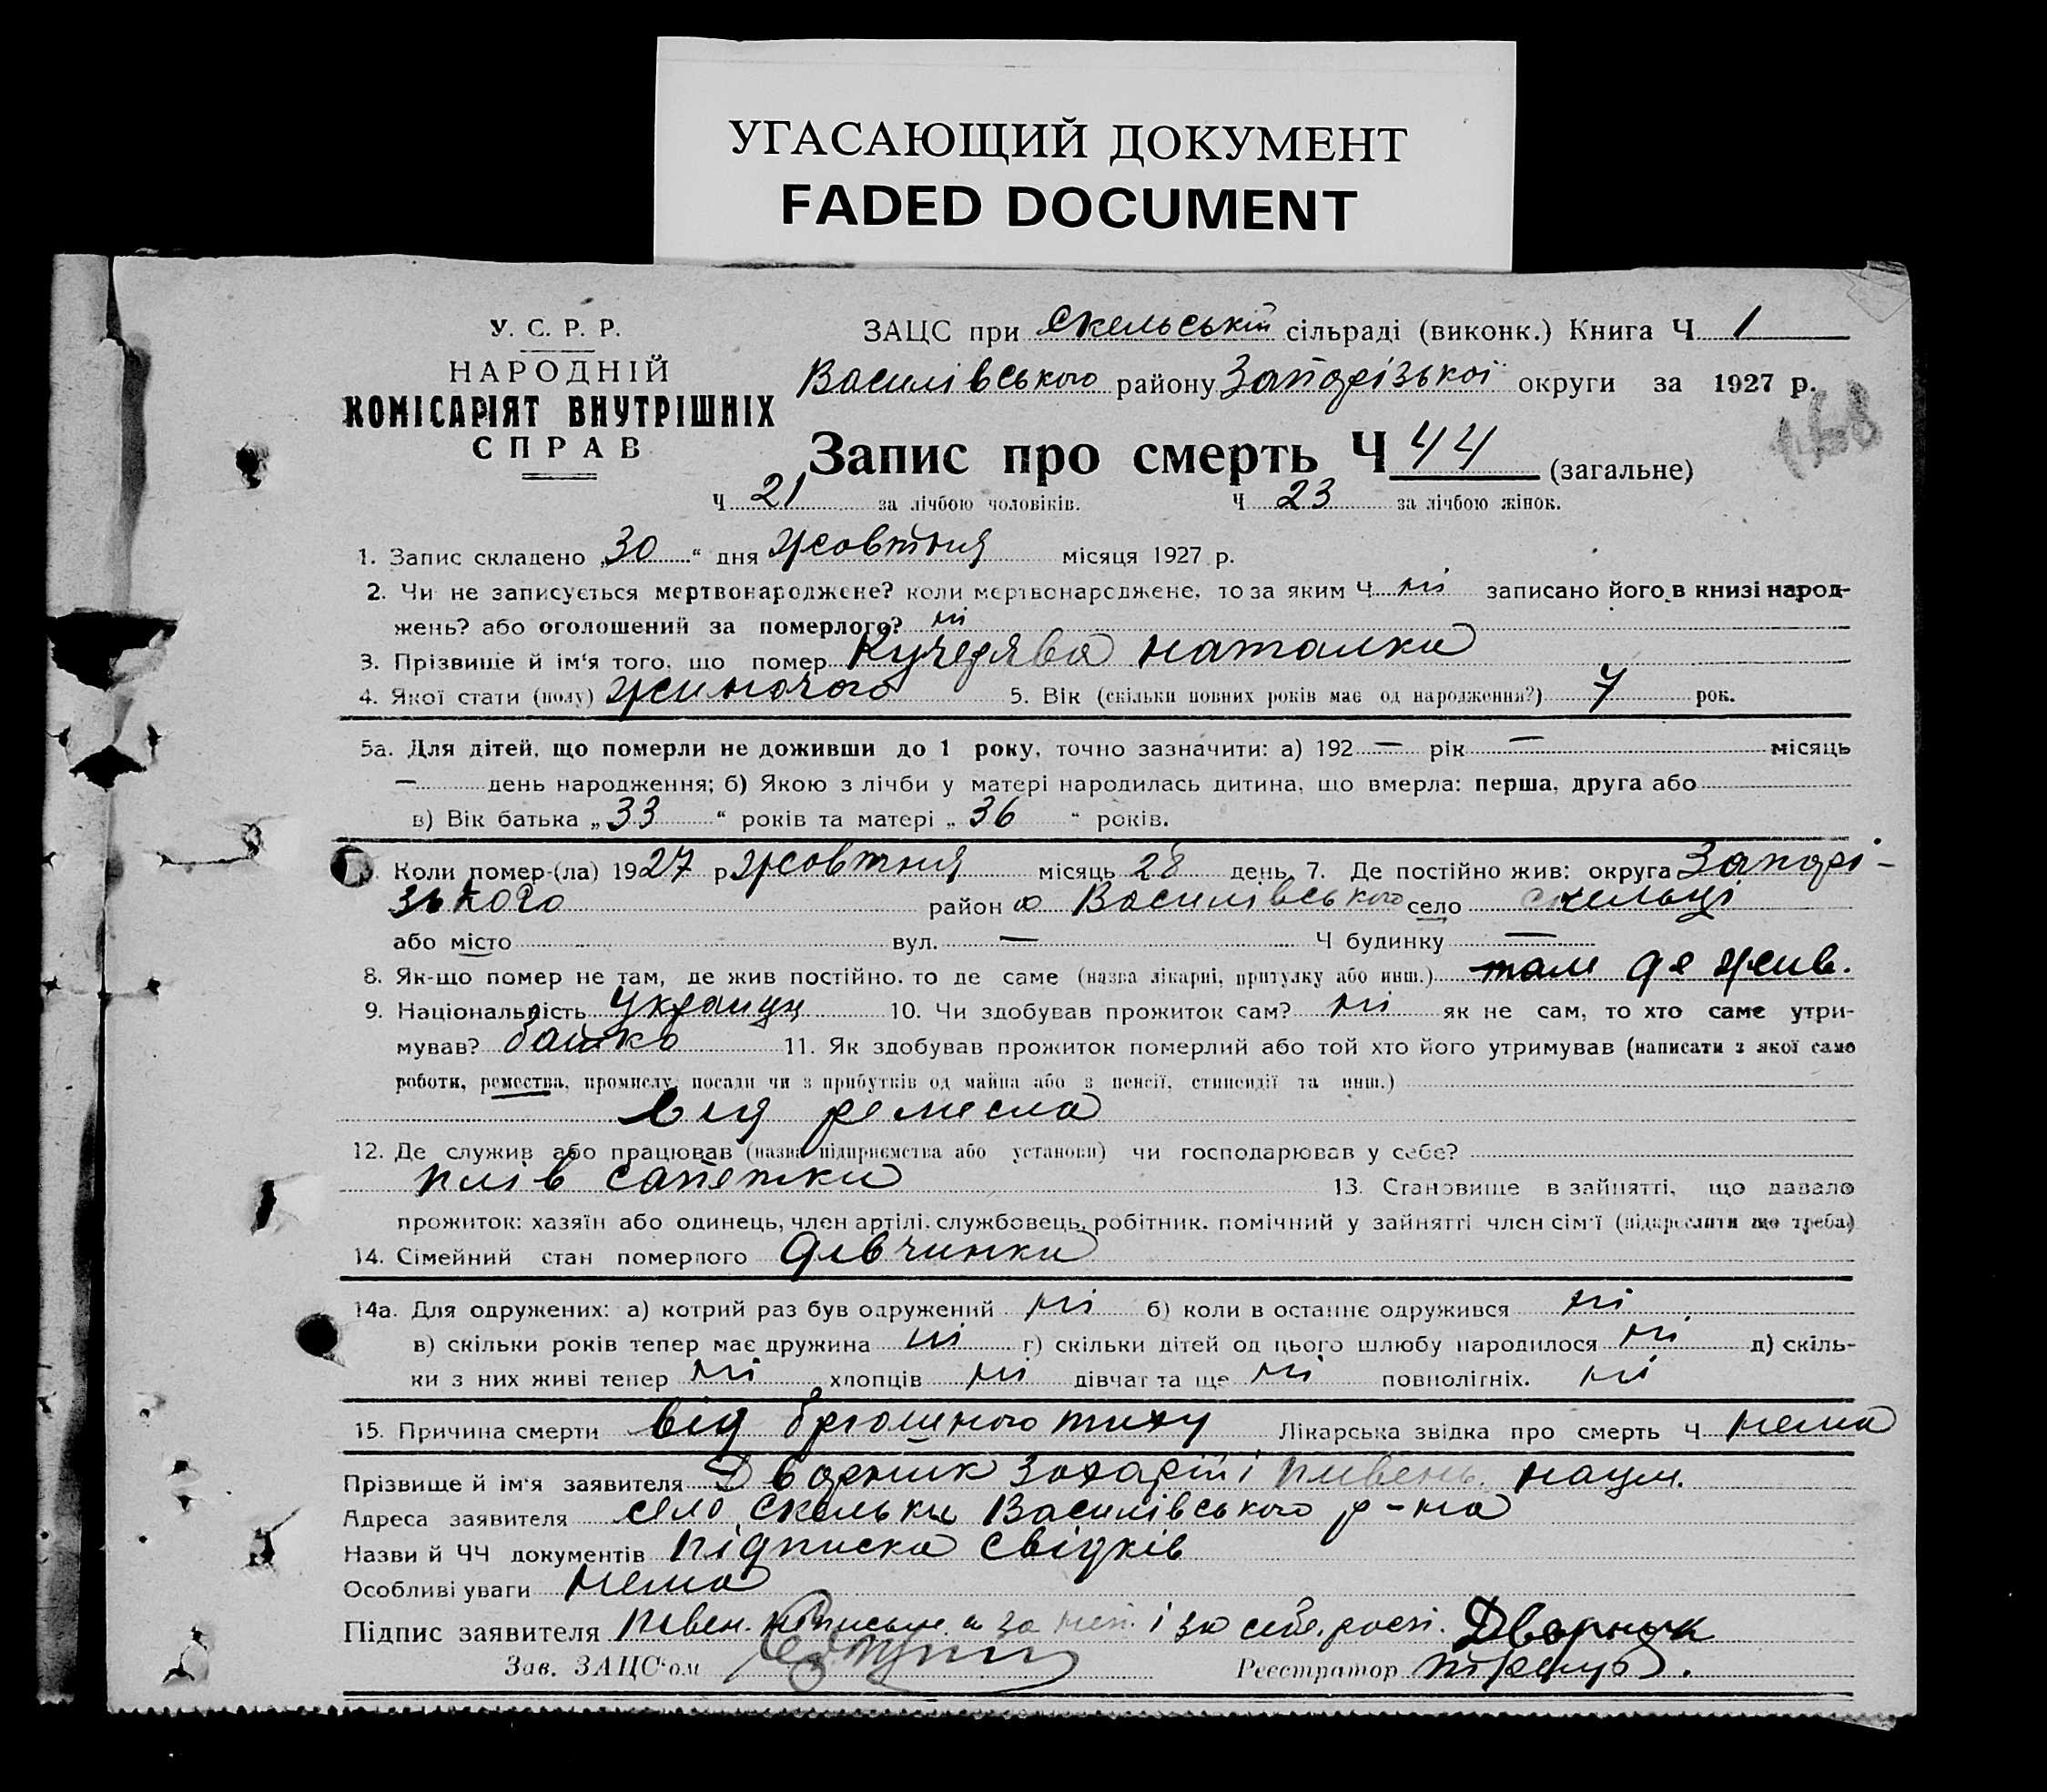 УГАСАЮЩИЙ ДОКУМЕНТ
FADED DOCUMENT
У. С. Р. Р.
НАРОДНІЙ
КОМІСАРІЯТ ВНУТРІШНІХ
СПРАВ
ЗАЦС при Скельській сільраді (виконк.) Книга Ч 1
Василівського району Запорізької округи за 1927 р.
Запис про смерть Ч 44 (загальне)
Ч 21 за лічбою чоловіків. Ч 23 за лічбою жінок.
1. Запис складено „30“ дня жовтня місяця 1927 р.
2. Чи не записується мертвонароджене? коли мертвонароджене, то за яким Ч ні записано його в книзі народ-
жень? або оголошений за померлого? ні
3. Прізвище й ім'я того, що помер Кучерява Наталка
4. Якої стати (полу) жиночого 5. Вік (скільки повних років має од народження?) 7 рок.
5а. Для дітей, що померли не доживши до 1 року, точно зазначити: а) 192 — рік — місяць
— день народження; б) Якою з лічби у матері народилась дитина, що вмерла: перша, друга або
в) Вік батька „33“ років та матері „36“ років.
Коли помер-(ла) 1927 р жовтня місяць 28 день 7. Де постійно жив: округа Запорі-
зького район Василівського село скельці
або місто вул. — Ч будинку —
8. Як-що помер не там, де жив постійно, то де саме (назва лікарні, притулку або инш.) там де жив.
9. Національність Украинц 10. Чи здобував прожиток сам? ні як не сам, то хто саме утри-
мував? батько 11. Як здобував прожиток померлий або той хто його утримував (написати з якої само
роботи, ремества, промислу, посади чи з прибутків од майна або з пенсії, стипендії та инш.)
від ремесла
12. Де служив або працював (назва підприємства або установи) чи господарював у себе?
плів сапетки 13. Становище в зайнятті, що давало
прожиток: хазяїн або одинець, член артілі, службовець, робітник, помічний у зайнятті член сім'ї (підкреслити що треба)
14. Сімейний стан померлого дівчинка
14а. Для одружених: а) котрий раз був одружений ні б) коли в останнє одружився ні
в) скільки років тепер має дружина ні г) скільки дітей од цього шлюбу народилося ні д) скіль-
ки з них живі тепер ні хлопців ні дівчат та ще ні повнолітніх. ні
15. Причина смерти від брюшного тиху Лікарська звідка про смерть Ч нема
Прізвище й ім'я заявителя Дворник Захарій і Пивень Наум.
Адреса заявителя село Скельки Василівського р-на
Назви й ЧЧ документів підписка свідків
Особливі уваги нема
Підпис заявителя Півен. а за і за себе росп. Дворнык
Зав. ЗАЦС'ом Реєстратор